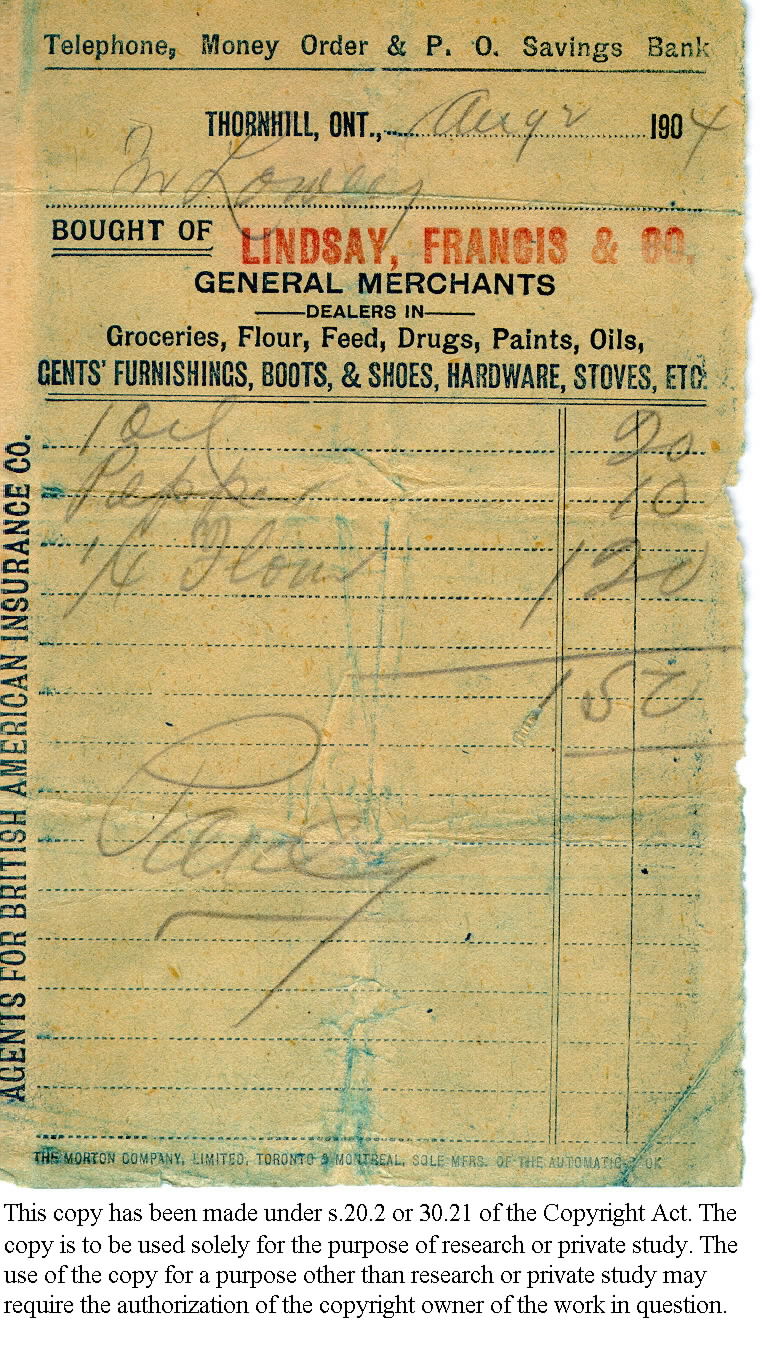 Telephone, Money Order & P. O. Savings Bank
THORNHILL, ONT., Aug 2 1904
BOUGHT OF LINDSAY, FRANCIS & CO.
GENERAL MERCHANTS
DEALERS IN
Groceries, Flour, Feed, Drugs, Paints, Oils,
GENTS' FURNISHINGS, BOOTS, & SHOES, HARDWARE, STOVES, ETC.
1 Oil 20
Pepper 10
Flour 1 20
1 50
AGENTS FOR BRITISH AMERICAN INSURANCE CO.
THE MORTON COMPANY, LIMITED, TORONTO & MONTREAL, SOLE MFRS. OF THE AUTOMATIC
This copy has been made under s.20.2 or 30.21 of the Copyright Act. The
copy is to be used solely for the purpose of research or private study. The
use of the copy for a purpose other than research or private study may
require the authorization of the copyright owner of the work in question.